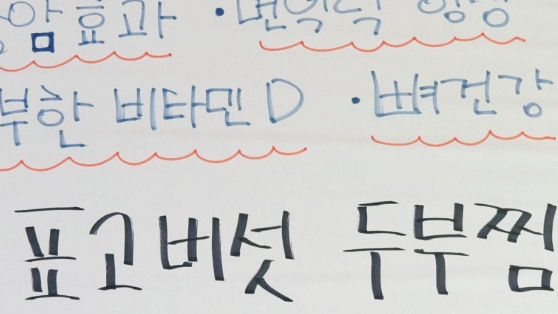 암효과 · 면역력 향상
부한 비타민D · 뼈건강
표고버섯 두부찜